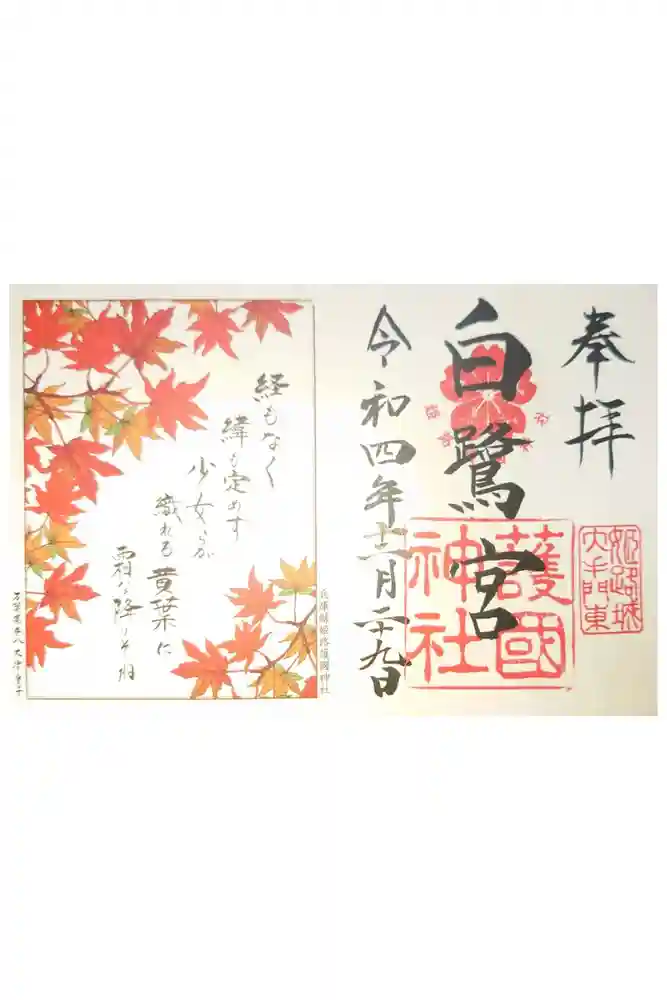 奉拝
姫路城
大手門東
白鷺宮
護國
神社
令和四年十二月二十九日
経もなく
緯も定めす
少女らが
織れる黄葉に
霜な降りそね
兵庫縣姫路護國神社
万葉集巻八 大津皇子